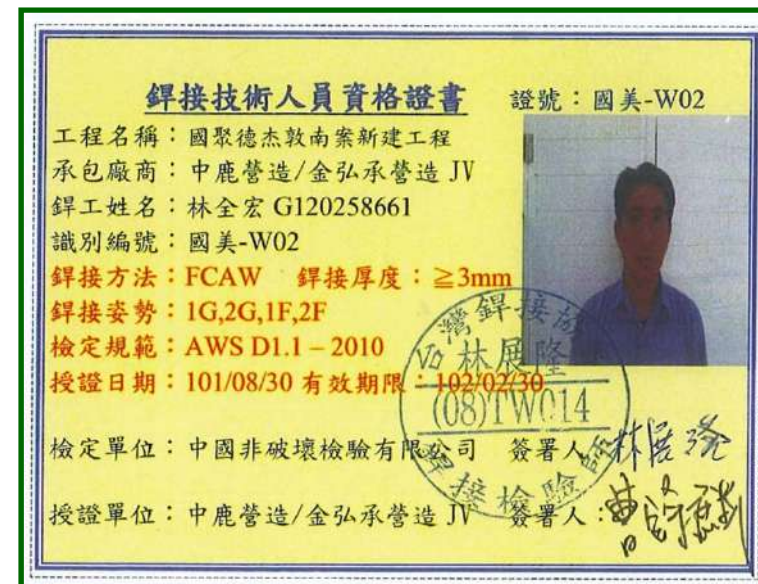 銲接技術人員資格證書 證號：國美-W02
工程名稱：國聚德杰敦南案新建工程
承包廠商：中鹿營造/金弘承營造 JV
銲工姓名：林全宏 G120258661
識別編號：國美-W02
銲接方法：FCAW 銲接厚度：≧3mm
銲接姿勢：1G,2G,1F,2F
檢定規範：AWS D1.1 – 2010
授證日期：101/08/30 有效期限：102/02/30
檢定單位：中國非破壞檢驗有限公司 簽署人
授證單位：中鹿營造/金弘承營造 JV 簽署人：
台灣銲接
林展隆
(08)TW014
銲接檢驗師
林展隆